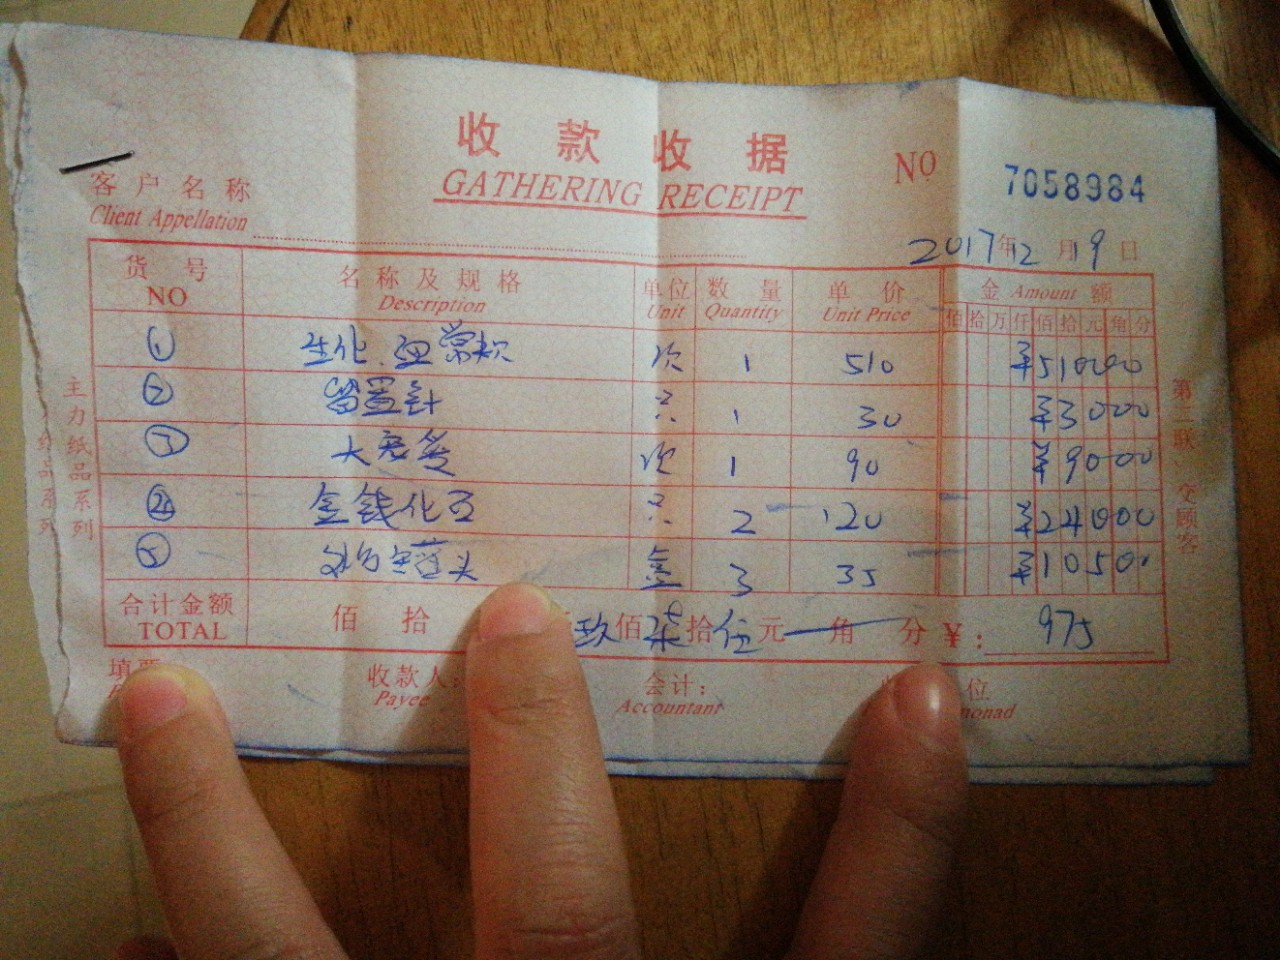 收款收据
GATHERING RECEIPT
NO 7058984
客户名称
Client Appellation
2017年12月19日
货号 名称及规格 单位 数量 单价 金 Amount 额
NO Description Unit Quantity Unit Price 佰拾万仟佰拾元角分
① 生化.血常规 次 1 510 ¥51000
② 留置针 只 1 30 ¥3000
③ 次 1 90 ¥9000
④ 金钱化石 只 2 120 ¥24000
⑤ 盒 3 35 ¥10500
合计金额 佰拾 玖佰柒拾伍元 角 分 ¥: 975
TOTAL
填票 收款人: 会计: 位
Payee Accountant
主力纸品系列
纸品系列
第二联:交顾客